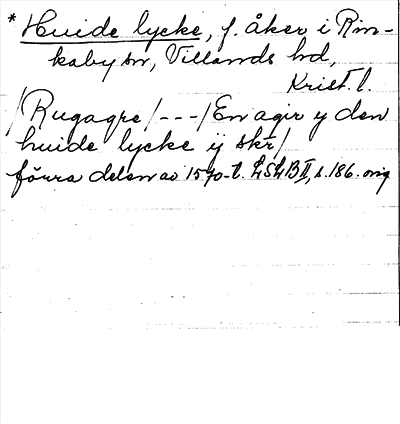 * Huide lycke, f. åker i Rin-
kaby sn, Villands hd,
Krist. l.
/Rugagre/---/En agir y den
huide lycke ij skr/
förra delen av 1570-t. LSLB II, s. 186. orig